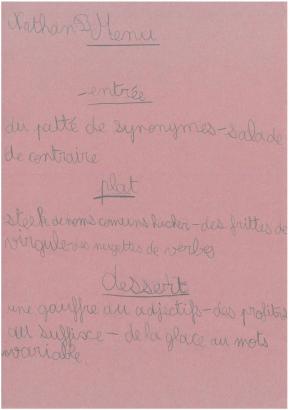 Nathan D Menu
-entrée
du patté de synonymes-salade
de contraire
plat
steek de noms comuns hacher-des frittes de
virgule des nugettes de verbes
dessert
une gauffre au adjectifs-des profites
au suffisce-de la glace au mots
variable